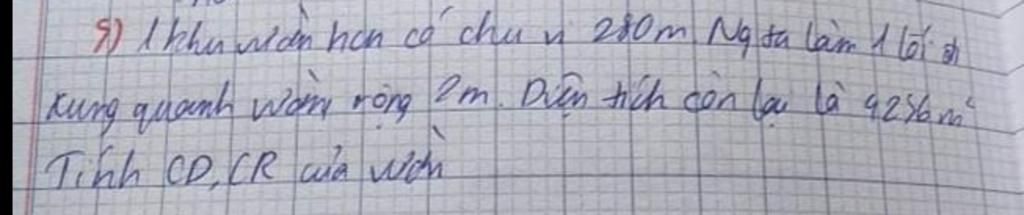 5) 1 khu vườn hcn có chu vi 280m Ng ta làm 1 lối đi
xung quanh vườn, rộng 2m. Diện tích còn lại là 4256m²
Tính CD, CR của vườn